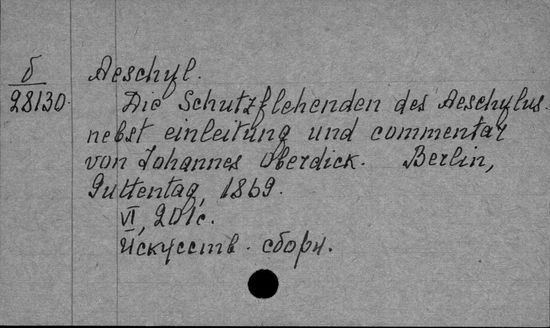 б
28130.
Aeschyl.
Die Schutzflehenden des Aeschylus.
nebst einleitung und commentar
von Johannes Oberdick. Berlin,
Guttentag, 1869.
VI, 201с.
Искусств. сборн.